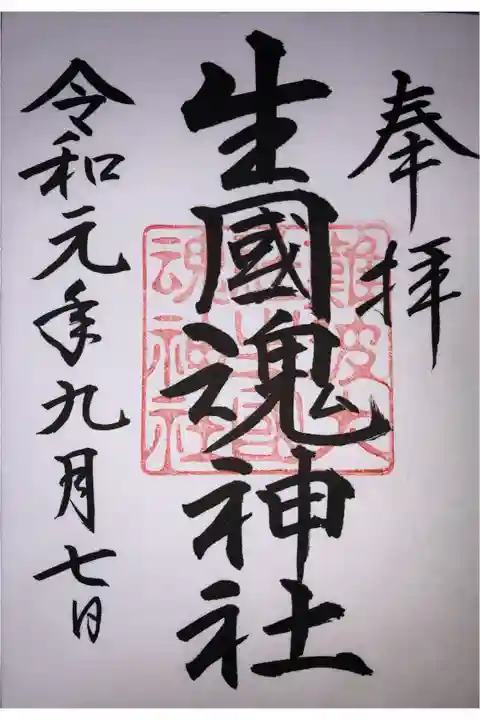 奉拝
生國魂神社
令和元年九月七日
難波大
社生國
魂神社